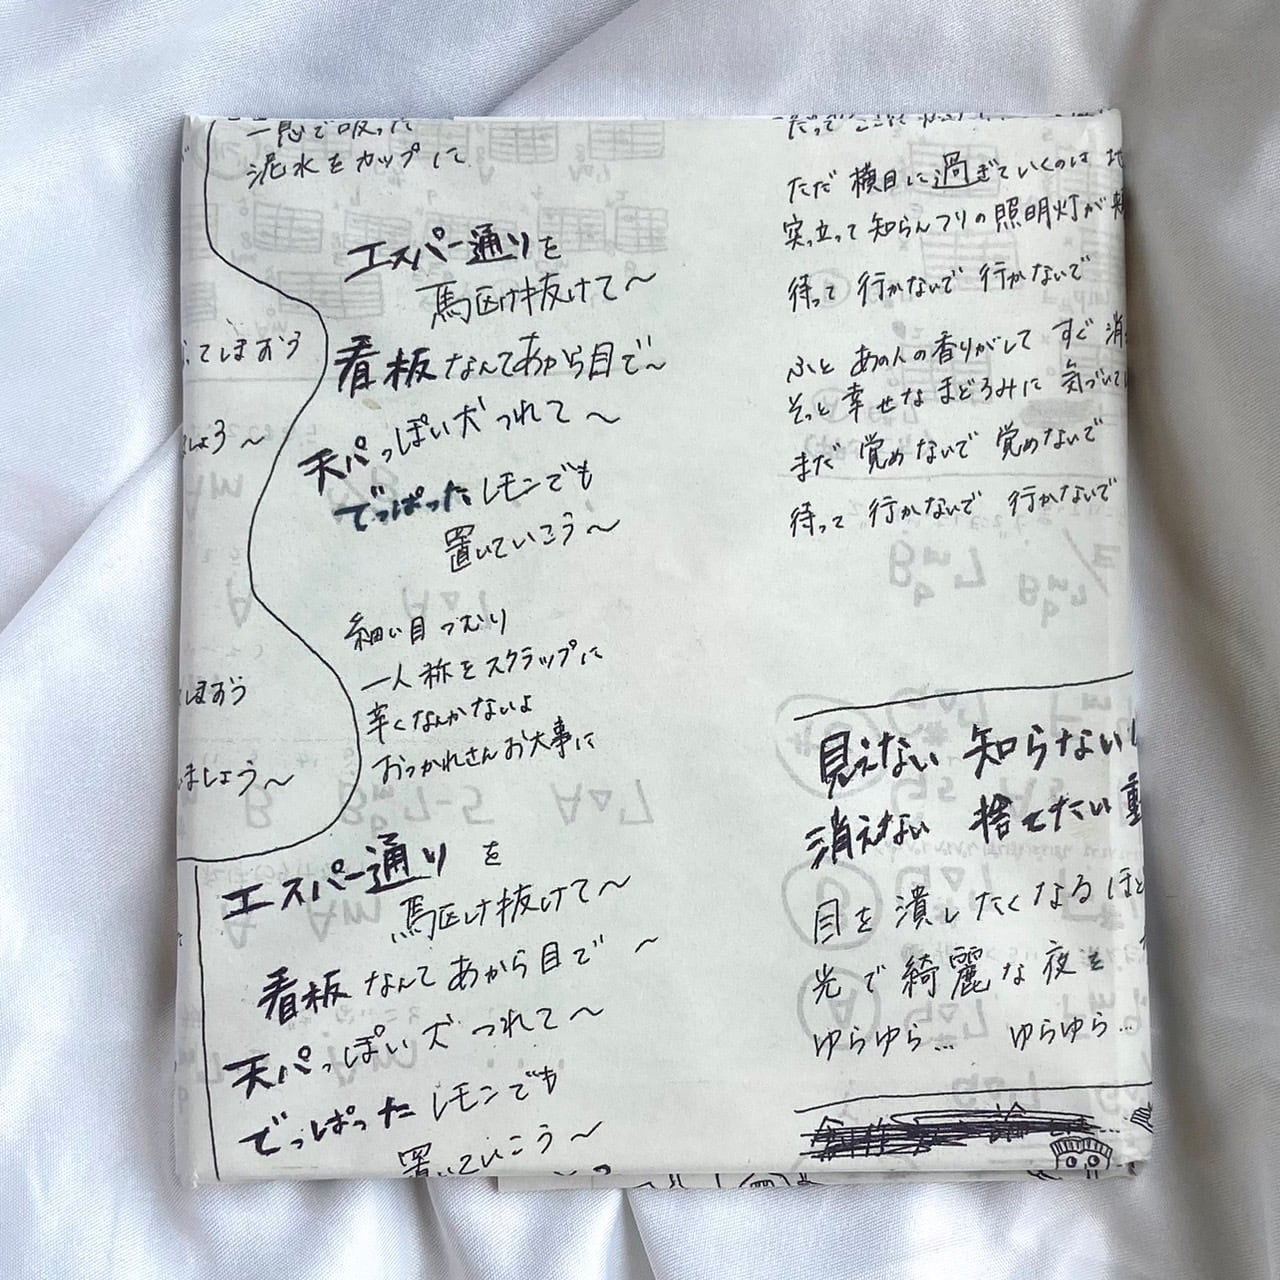 一息で吸った
泥水をカップに
エスパー通りを
駆け抜けて〜
看板なんてあから目で〜
天パっぽい犬つれて〜
でっぱったレモンでも
置いていこう〜
細い目つむり
一人称をスクラップに
辛くなんかないよ
おつかれさんお大事に
エスパー通りを
駆け抜けて〜
看板なんてあから目で〜
天パっぽい犬つれて〜
でっぱったレモンでも
置いていこう〜
てしまおう
しょう〜
しまおう
ましょう〜
ただ 横目に過ぎていくのは
突っ立って知らんフリの照明灯が
待って 行かないで 行かないで
ふと あの人の香りがして すぐ 消
そっと 幸せな まどろみに 気づいて
まだ 覚めないで 覚めないで
待って 行かないで 行かないで
見えない 知らない
消えない 捨てたい
目を潰したくなるほど
光で綺麗な夜を
ゆらゆら… ゆらゆら…